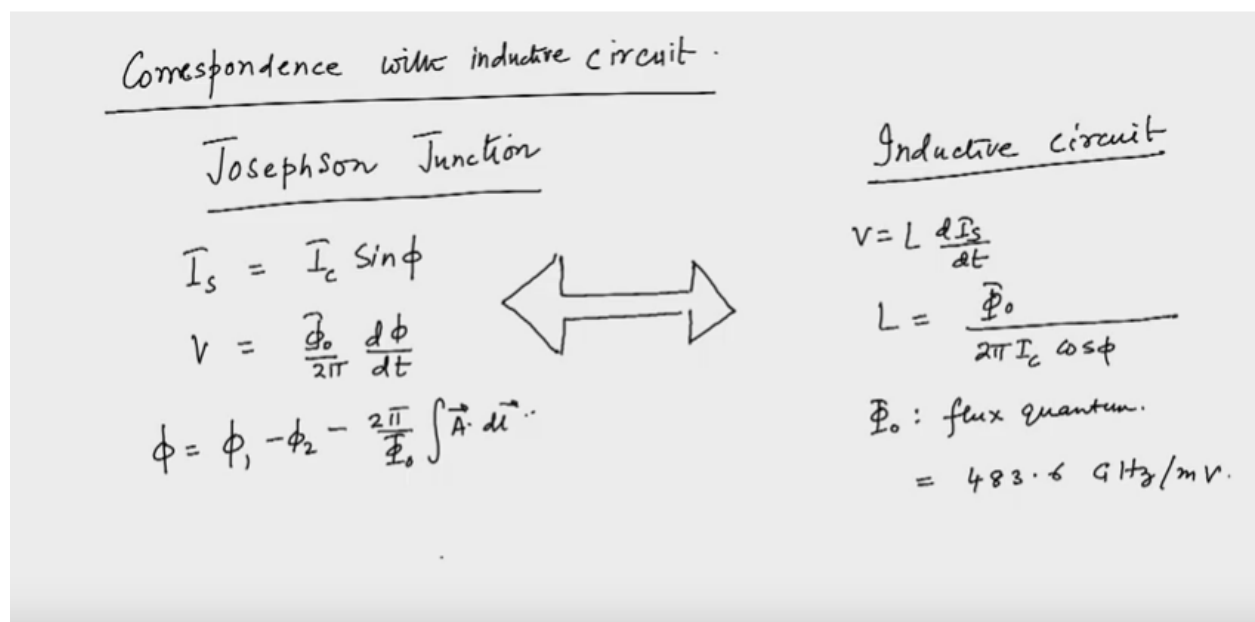 Correspondence with inductive circuit.
Josephson Junction
I_s = I_c Sinϕ
V = Φ_0/2π dϕ/dt
ϕ = ϕ_1 - ϕ_2 - 2π/Φ_0 ∫ A⃗. dl⃗ ..
Inductive circuit
V = L dI_s/dt
L = Φ_0 / 2π I_c cosϕ
Φ_0 : flux quantum.
= 483.6 GHz/mV.